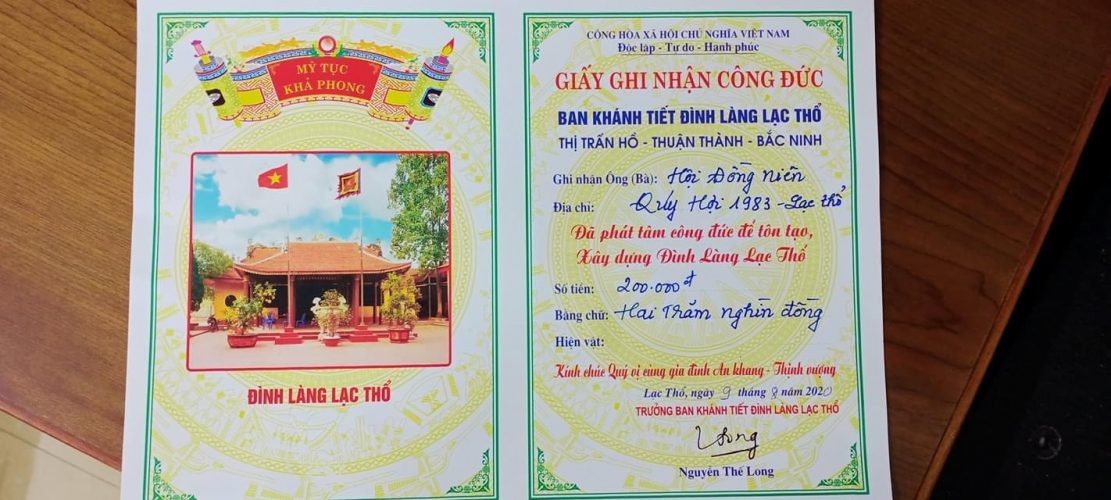 MỸ TỤC
KHẢ PHONG
ĐÌNH LÀNG LẠC THỔ
CỘNG HÒA XÃ HỘI CHỦ NGHĨA VIỆT NAM
Độc lập - Tự do - Hạnh phúc
GIẤY GHI NHẬN CÔNG ĐỨC
BAN KHÁNH TIẾT ĐÌNH LÀNG LẠC THỔ
THỊ TRẤN HỒ - THUẬN THÀNH - BẮC NINH
Ghi nhận Ông (Bà): Hội Đồng niên
Địa chỉ: Qúy Hợi 1983 - Lạc thổ
Đã phát tâm công đức để tôn tạo,
Xây dựng Đình Làng Lạc Thổ
Số tiền: 200.000đ
Bằng chữ: Hai Trăm nghìn đồng
Hiện vật:
Kính chúc Quý vị cùng gia đình An khang - Thịnh vượng
Lạc Thổ, ngày 9 tháng 8 năm 2020
TRƯỞNG BAN KHÁNH TIẾT ĐÌNH LÀNG LẠC THỔ
Long
Nguyễn Thế Long